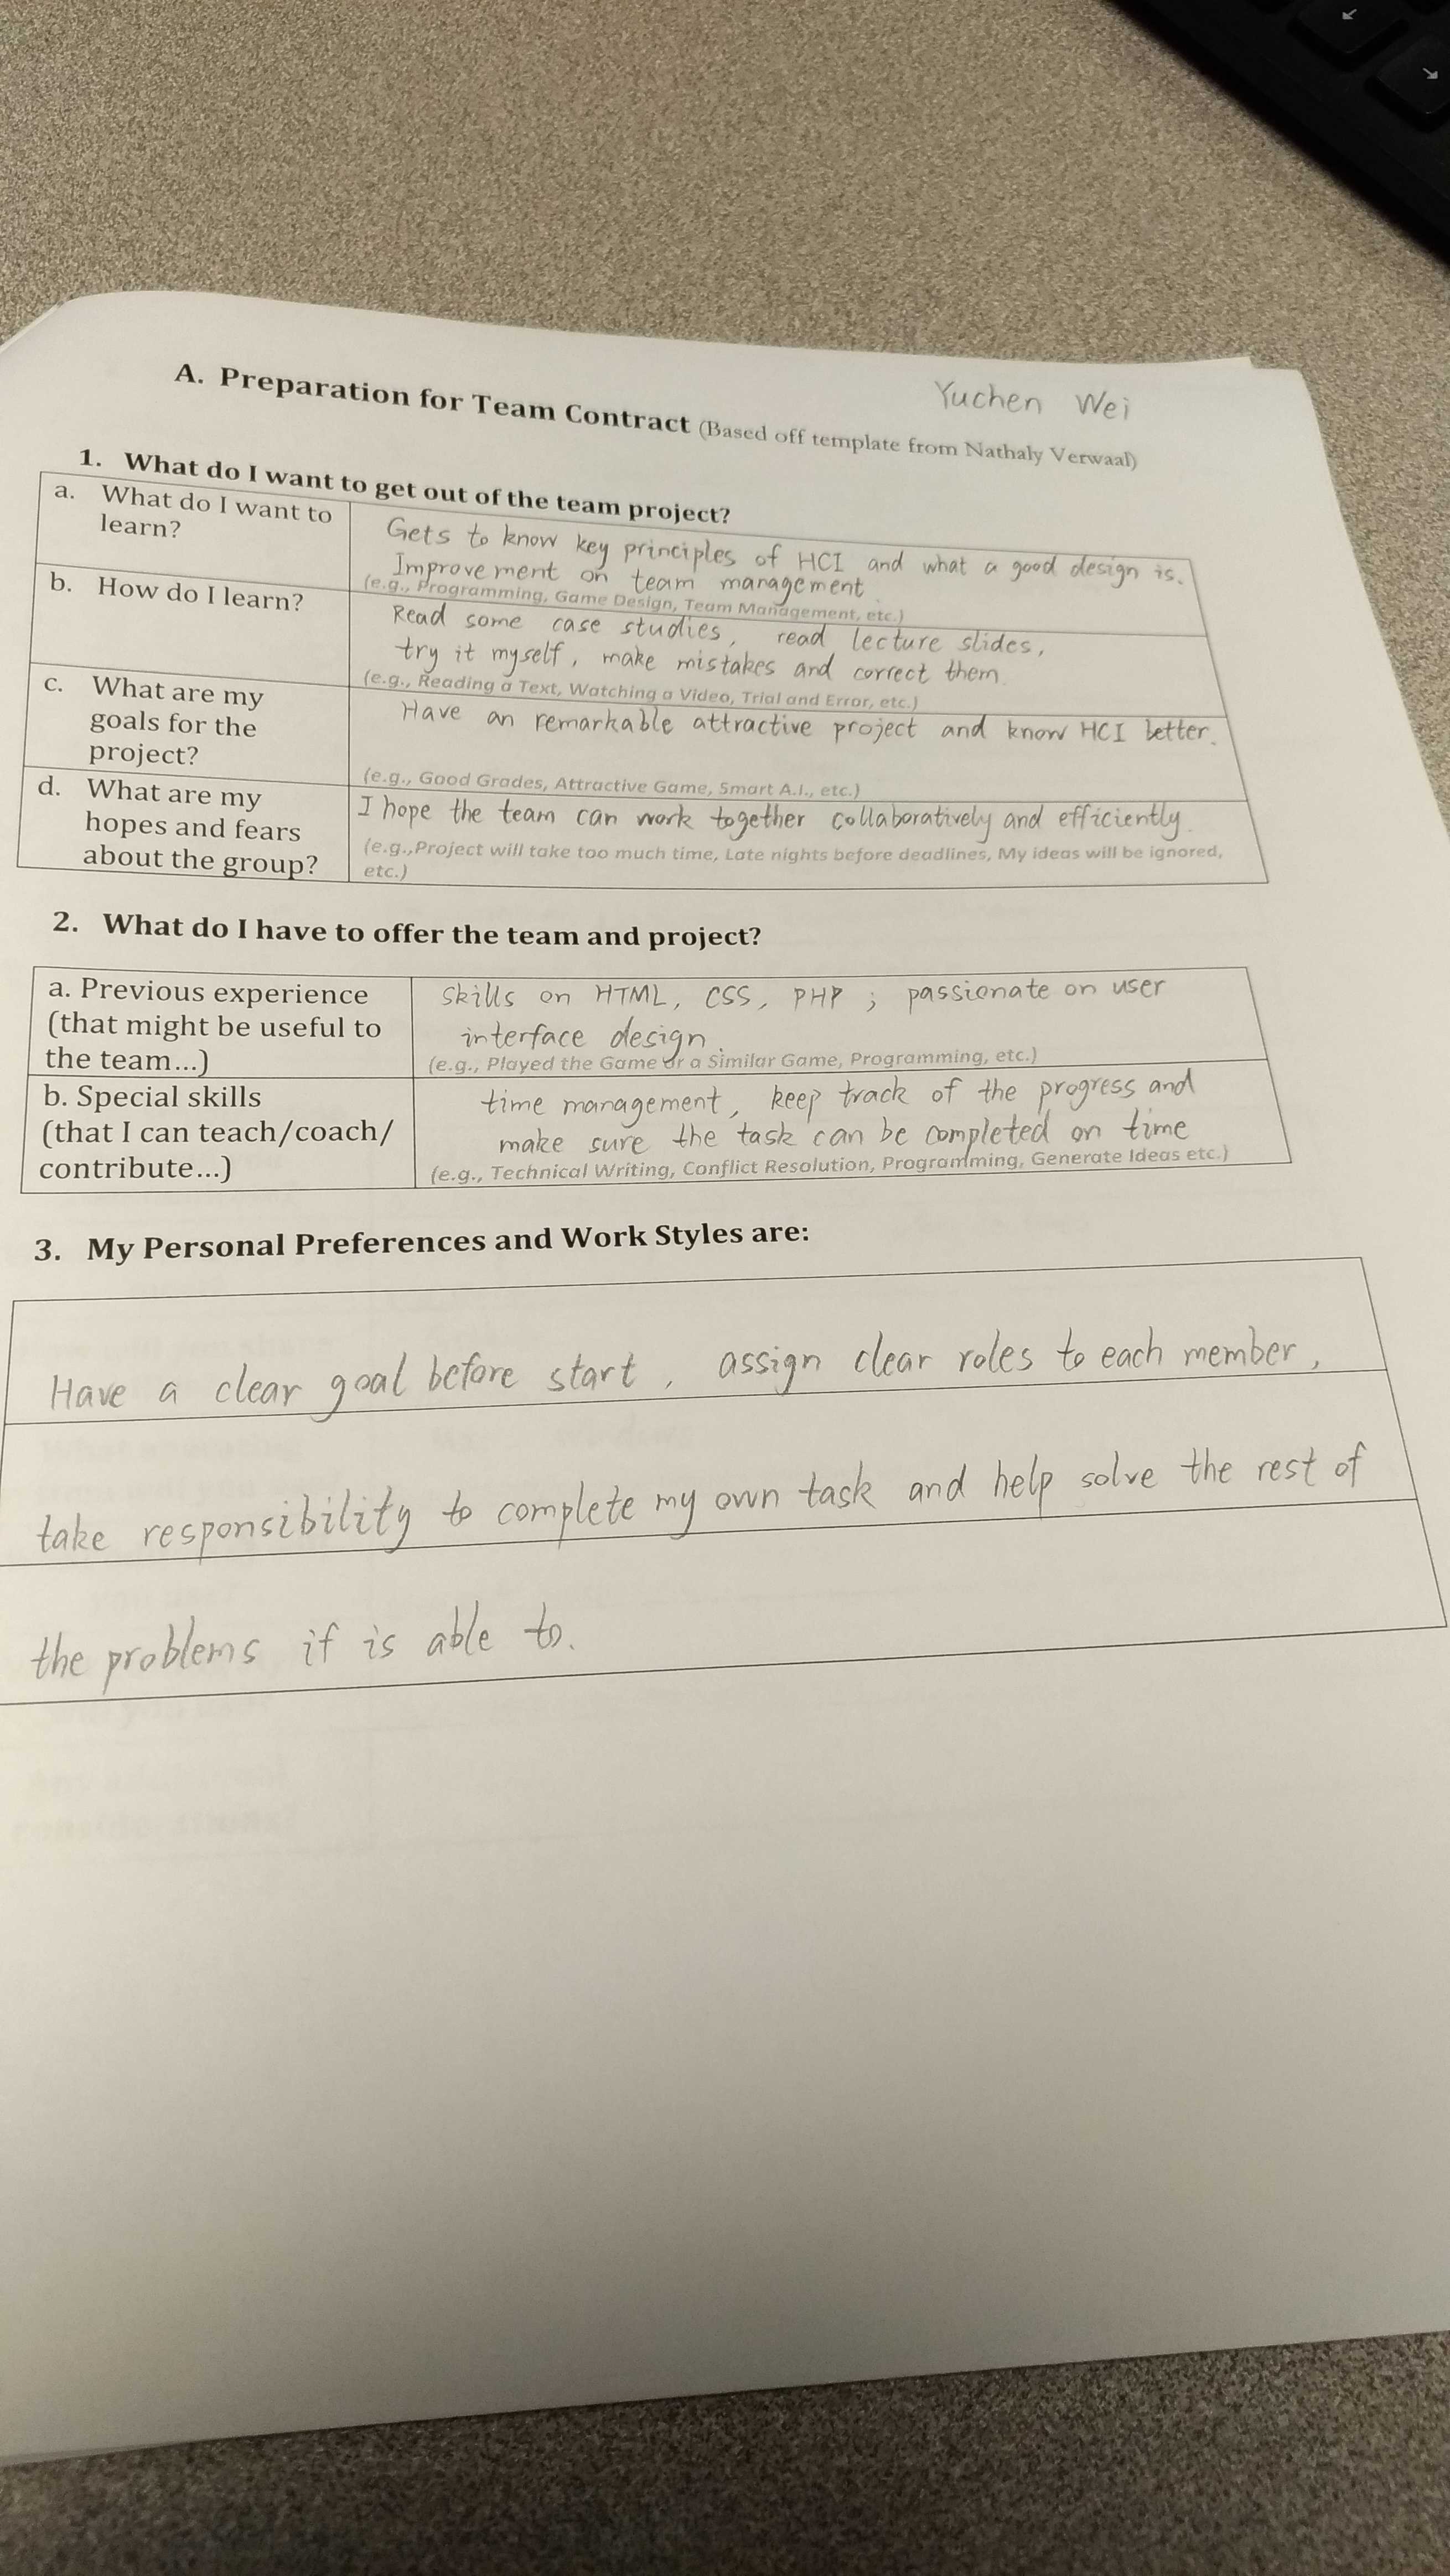 Yuchen Wei
A. Preparation for Team Contract (Based off template from Nathaly Verwaal)
1. What do I want to get out of the team project?
a. What do I want to
learn?
Gets to know key principles of HCI and what a good design is.
Improvement on team management
(e.g., Programming, Game Design, Team Management, etc.)
b. How do I learn?
Read some case studies, read lecture slides,
try it myself, make mistakes and correct them.
(e.g., Reading a Text, Watching a Video, Trial and Error, etc.)
c. What are my
goals for the
project?
Have an remarkable attractive project and know HCI better.
(e.g., Good Grades, Attractive Game, Smart A.I., etc.)
d. What are my
hopes and fears
about the group?
I hope the team can work together collaboratively and efficiently.
(e.g.,Project will take too much time, Late nights before deadlines, My ideas will be ignored,
etc.)
2. What do I have to offer the team and project?
a. Previous experience
(that might be useful to
the team...)
skills on HTML, CSS, PHP ; passionate on user
interface design.
(e.g., Played the Game or a Similar Game, Programming, etc.)
b. Special skills
(that I can teach/coach/
contribute...)
time management, keep track of the progress and
make sure the task can be completed on time
(e.g., Technical Writing, Conflict Resolution, Programming, Generate Ideas etc.)
3. My Personal Preferences and Work Styles are:
Have a clear goal before start, assign clear roles to each member,
take responsibility to complete my own task and help solve the rest of
the problems if is able to.